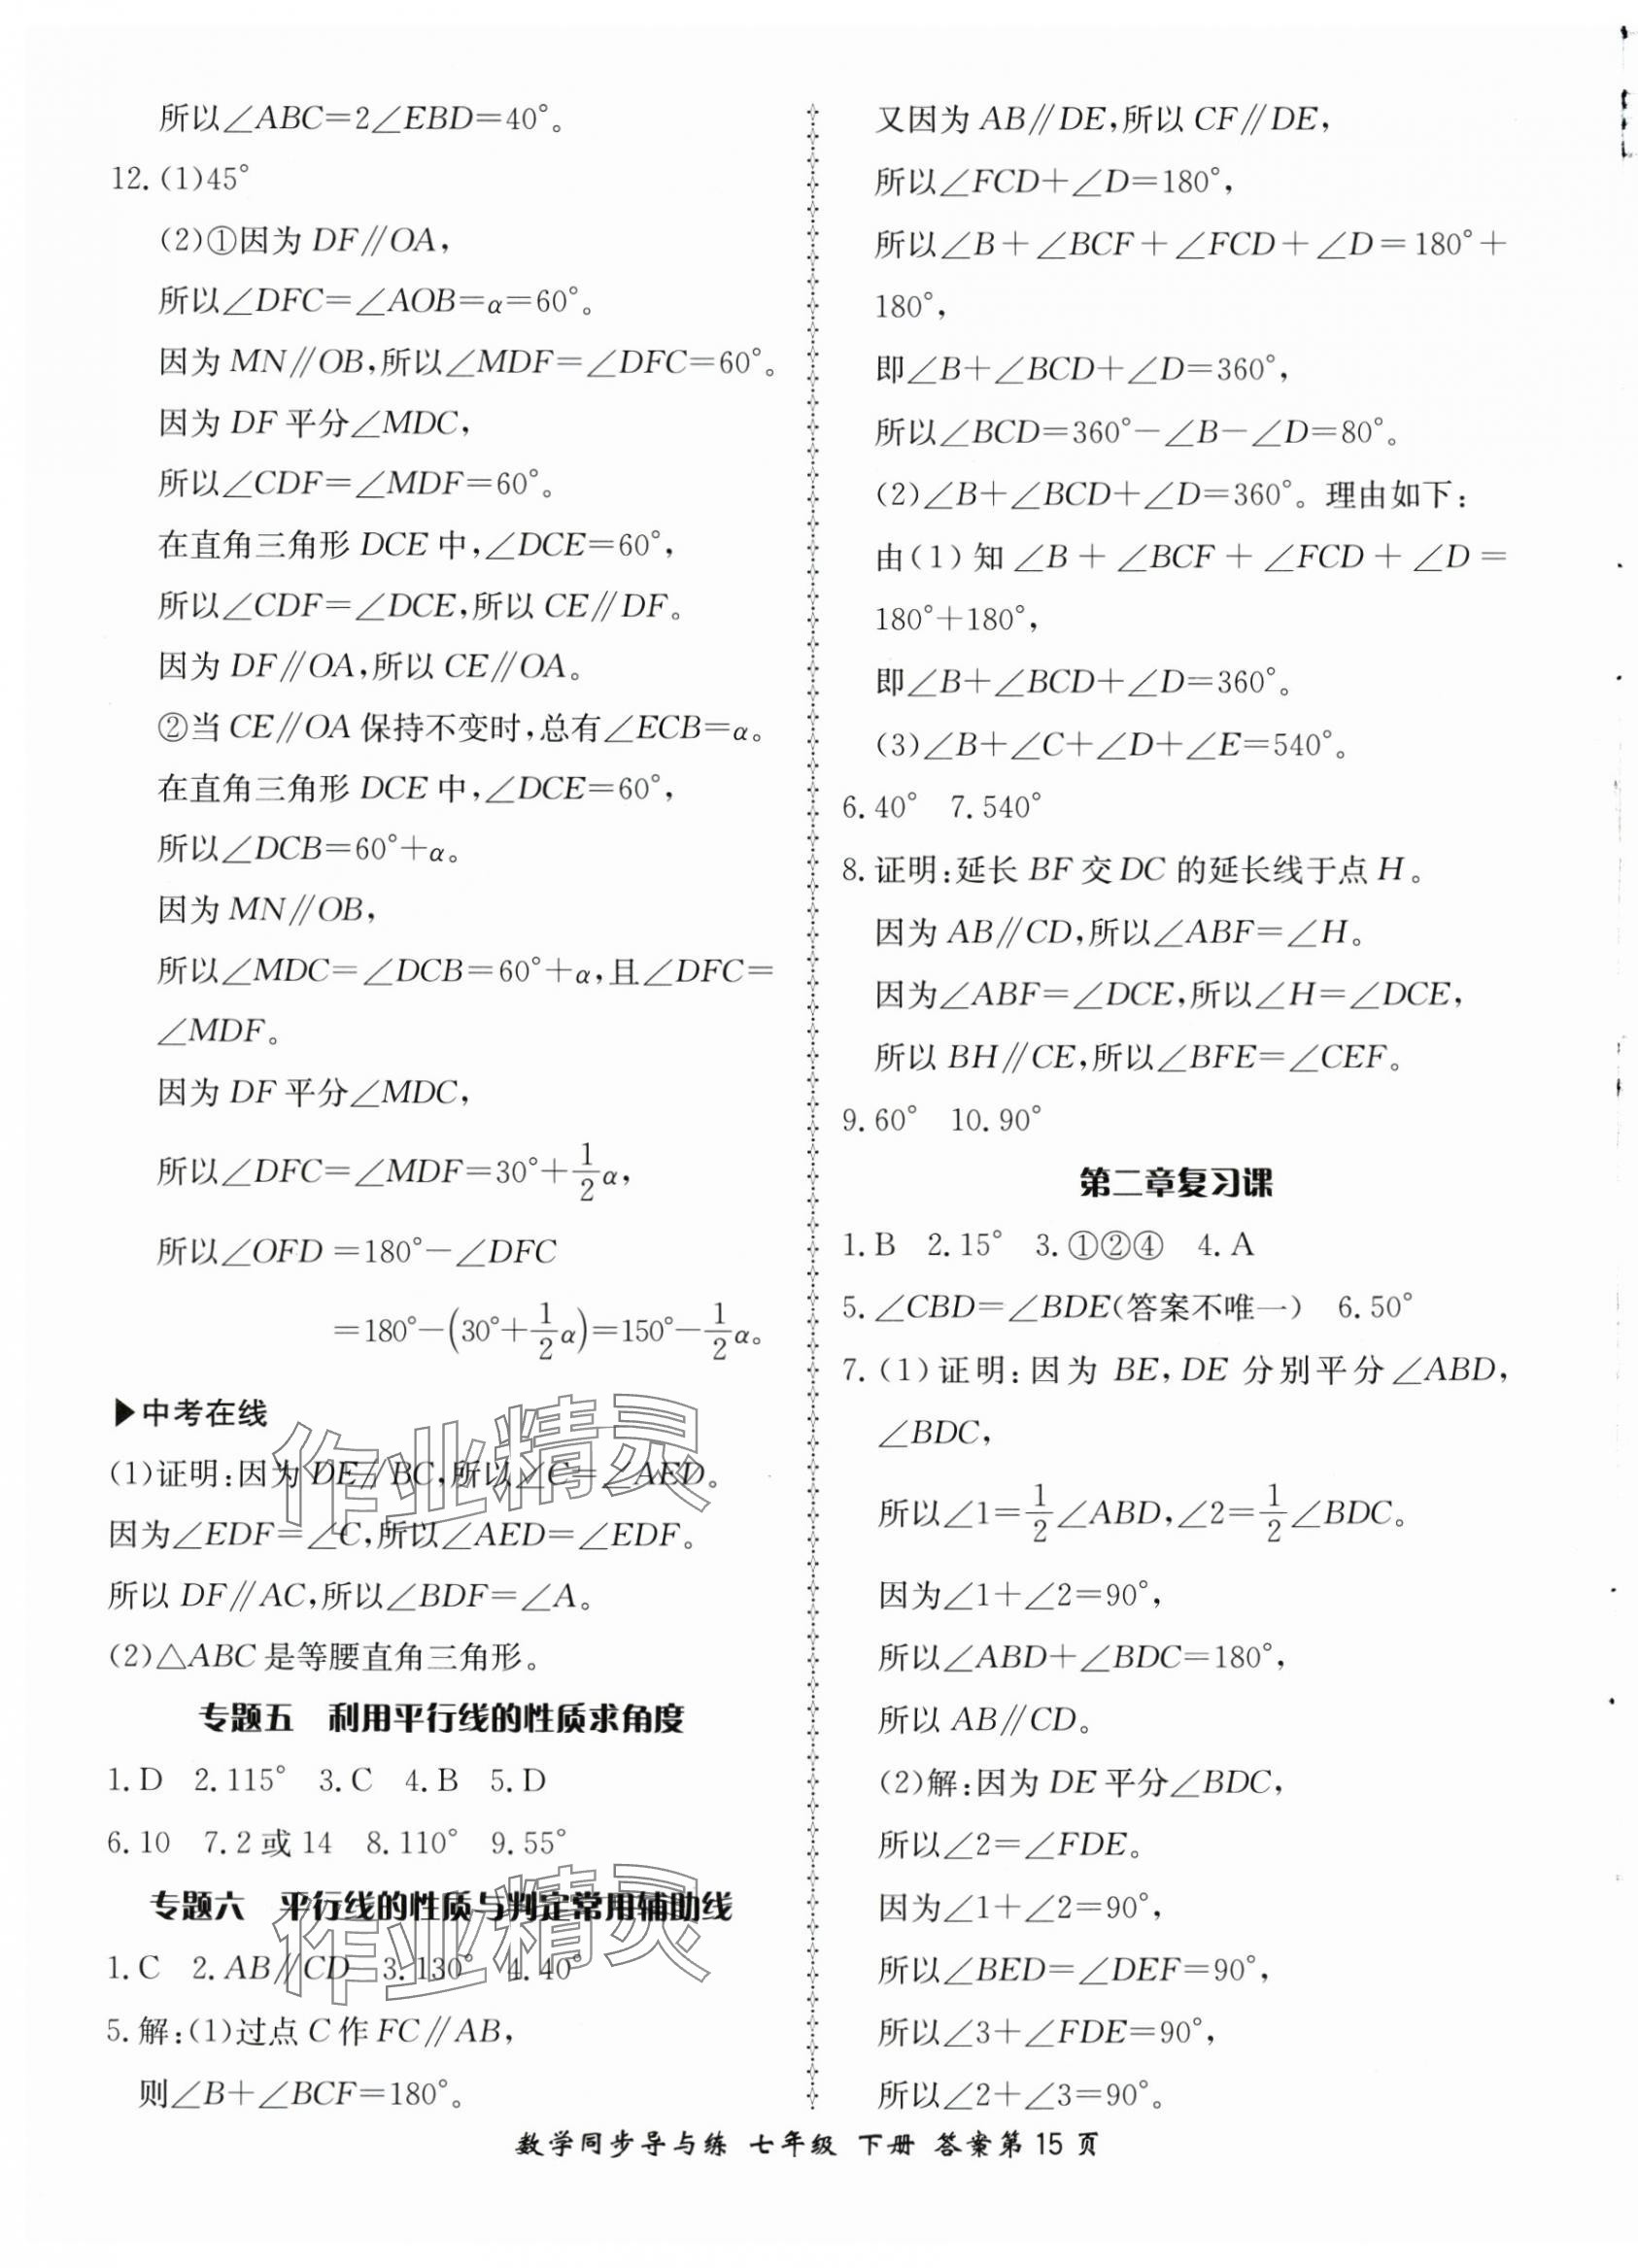 所以∠ABC=2∠EBD=40°。
12.(1)45°
(2)①因为 DF∥OA,
所以∠DFC=∠AOB=α=60°。
因为 MN∥OB,所以∠MDF=∠DFC=60°。
因为 DF 平分∠MDC,
所以∠CDF=∠MDF=60°。
在直角三角形 DCE 中,∠DCE=60°,
所以∠CDF=∠DCE,所以 CE∥DF。
因为 DF∥OA,所以 CE∥OA。
②当 CE∥OA 保持不变时,总有∠ECB=α。
在直角三角形 DCE 中,∠DCE=60°,
所以∠DCB=60°+α。
因为 MN∥OB,
所以∠MDC=∠DCB=60°+α,且∠DFC=
∠MDF。
因为 DF 平分∠MDC,
所以∠DFC=∠MDF=30°+1/2α,
所以∠OFD =180°-∠DFC
=180°-(30°+1/2α)=150°-1/2α。
▶中考在线
(1)证明:因为 DE∥BC,所以∠C=∠AED。
因为∠EDF=∠C,所以∠AED=∠EDF。
所以 DF∥AC,所以∠BDF=∠A。
(2)△ABC 是等腰直角三角形。
专题五 利用平行线的性质求角度
1.D 2.115° 3.C 4.B 5.D
6.10 7.2 或 14 8.110° 9.55°
专题六 平行线的性质与判定常用辅助线
1.C 2.AB∥CD 3.130° 4.40°
5.解:(1)过点 C 作 FC∥AB,
则∠B+∠BCF=180°。
又因为 AB∥DE,所以 CF∥DE,
所以∠FCD+∠D=180°,
所以∠B+∠BCF+∠FCD+∠D=180°+
180°,
即∠B+∠BCD+∠D=360°,
所以∠BCD=360°-∠B-∠D=80°。
(2)∠B+∠BCD+∠D=360°。理由如下:
由(1)知∠B+∠BCF+∠FCD+∠D=
180°+180°,
即∠B+∠BCD+∠D=360°。
(3)∠B+∠C+∠D+∠E=540°。
6.40° 7.540°
8.证明:延长 BF 交 DC 的延长线于点 H。
因为 AB∥CD,所以∠ABF=∠H。
因为∠ABF=∠DCE,所以∠H=∠DCE,
所以 BH∥CE,所以∠BFE=∠CEF。
9.60° 10.90°
第二章复习课
1.B 2.15° 3.①②④ 4.A
5.∠CBD=∠BDE(答案不唯一) 6.50°
7.(1)证明:因为 BE,DE 分别平分∠ABD,
∠BDC,
所以∠1=1/2∠ABD,∠2=1/2∠BDC。
因为∠1+∠2=90°,
所以∠ABD+∠BDC=180°,
所以 AB∥CD。
(2)解:因为 DE 平分∠BDC,
所以∠2=∠FDE。
因为∠1+∠2=90°,
所以∠BED=∠DEF=90°,
所以∠3+∠FDE=90°,
所以∠2+∠3=90°。
数学同步导与练 七年级 下册 答案第 15 页
作业精灵
作业精灵